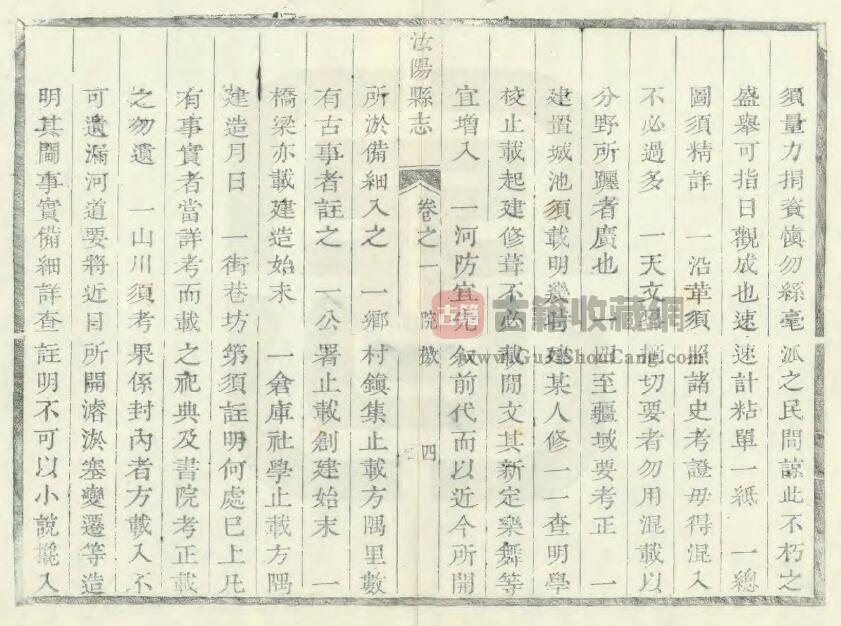 須量力捐資慎勿絲毫派之民間諒此不朽之
盛舉可指日觀成也速速計粘單一紙　一總
圖須精詳　一沿革須照諸史考證毋得混入
不必過多　一天文 切要者勿用混載以
分野所躔者廣也　一四至疆域要考正　一
建置城池須載明幾時建某人修一一查明學
校止載起建修葺不必載閒文其新定樂舞等
宜增入　一河防宜先叙前代而以近今所開
汝陽縣志
卷之一　院檄　四
所淤備細入之　一鄉村鎮集止載方隅里數
有古事者註之　一公署止載創建始末　一
橋梁亦載建造始末　一倉庫社學止載方隅
建造月日　一街巷坊第須註明何處已上凡
有事實者當詳考而載之祀典及書院考正載
之勿遺　一山川須考果係封內者方載入不
可遺漏河道要將近日所開濬淤塞變遷等造
明其閘事實備細詳查註明不可以小說撬入
古籍
古籍收藏網
www.GuJiShouCang.com